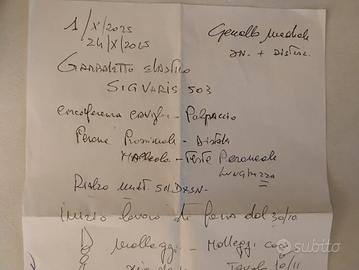 1/X/2025
24/X/2025
Gemello mediale
DX. + Distrz.
GAMBALETTO ELASTICO
SIGVARIS 503
circonferenza caviglia - Polpaccio
Perone Prossimale - Distale
MALLEOLO - Testa Peroneale
LUNGHEZZA
Rialzo
inizio lavoro di forza dal 30/10
Molleggi - Molleggi
10/11
subito